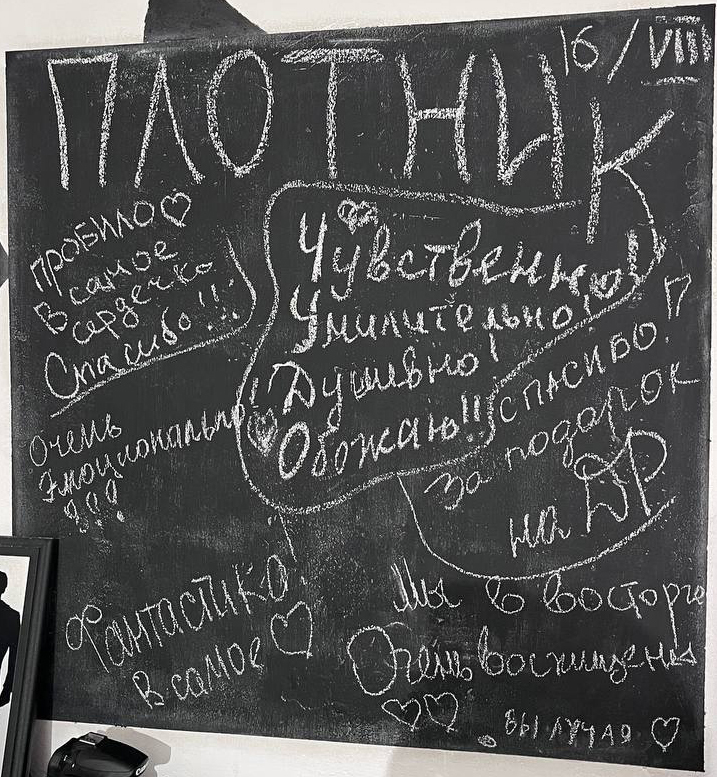 ПЛОТНИК
16/VIII
ПРОБИЛО ♡
В самое
сердечко
Спасибо!!!
Чувственно!
Умилительно!
Душевно!
Обожаю!!
Очень
Эмоционально!
!!!
СПАСИБО!
за подарок
на ДР
Фантастика!
В самое ♡
Мы в восторге
Очень восхищены
♡♡